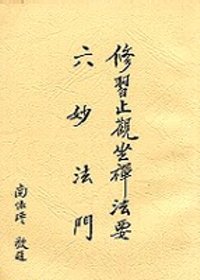 修習止觀坐禪法要
六妙法門
南懷瑾 敬題